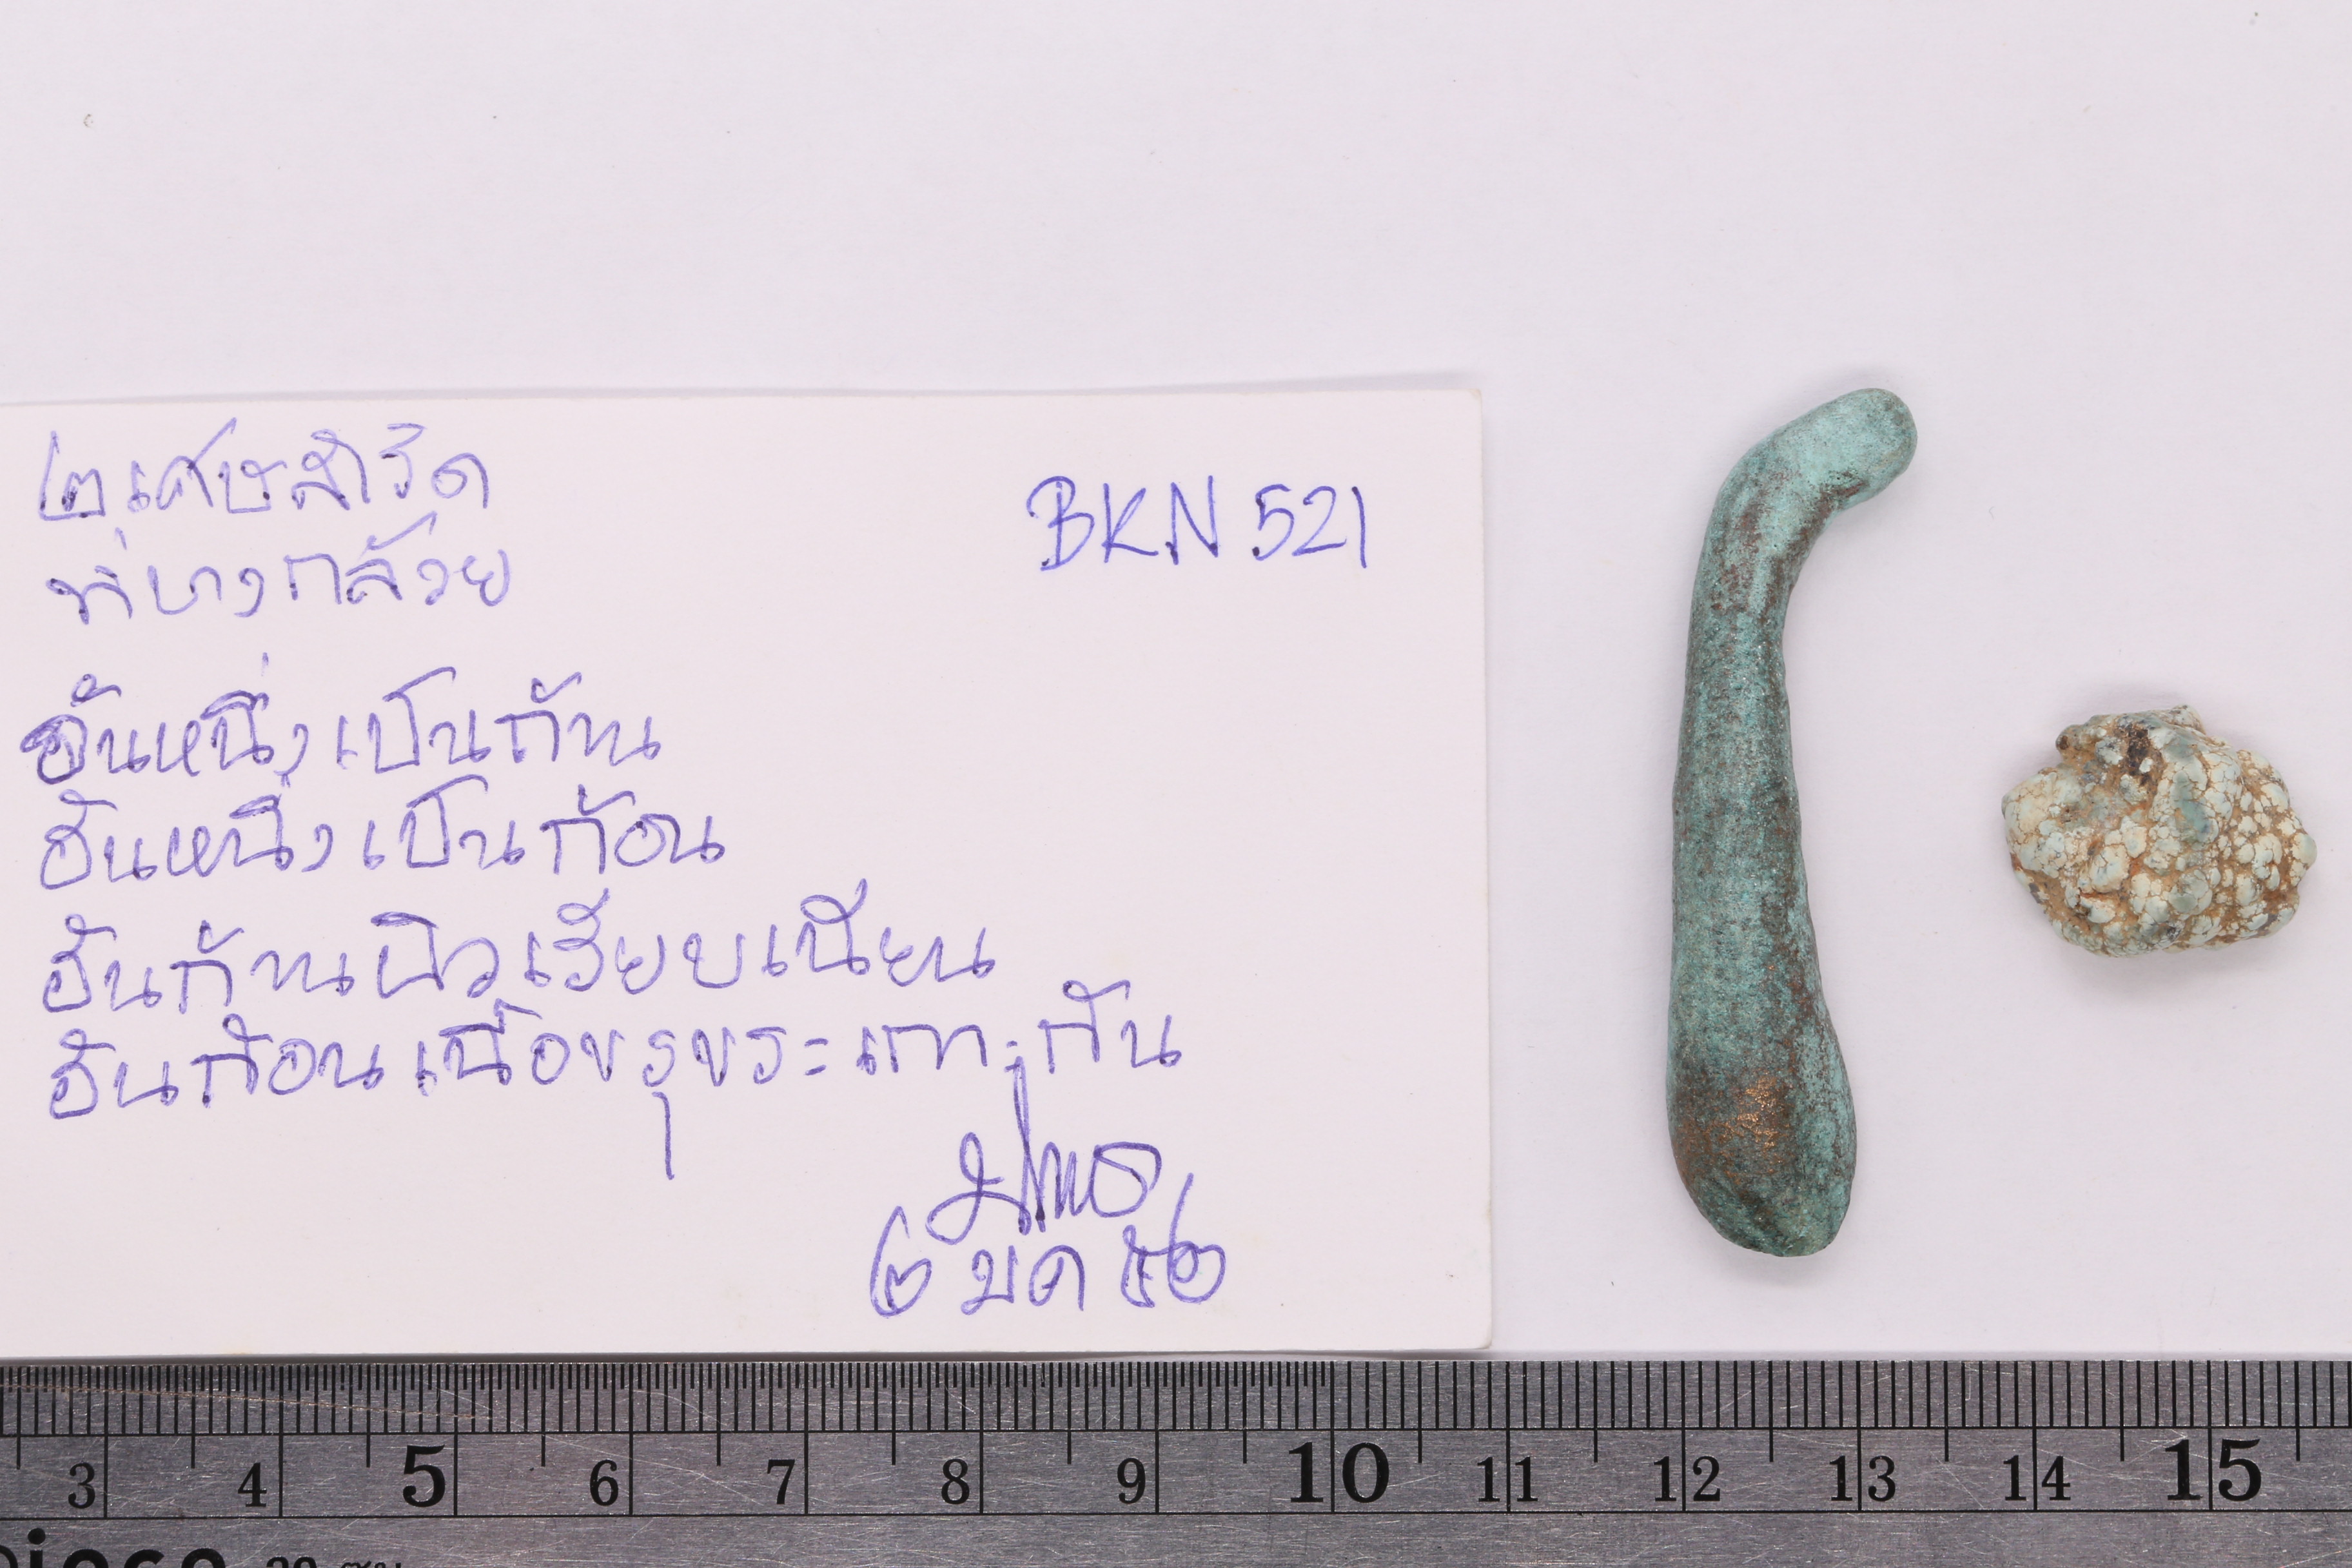 ๒ เศษสำริด
ที่บางกล้วย
BKN 521
อันหนึ่งเป็นก้าน
อันหนึ่งเป็นก้อน
อันก้านผิวเรียบเนียน
อันก้อนเนื้อขรุขระเกาะกัน
๒ มค ๕๒
3 4 5 6 7 8 9 10 11 12 13 14 15